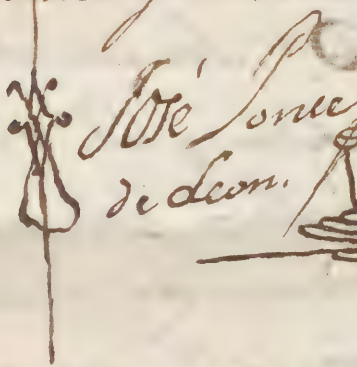 José Ponce
de Leon.